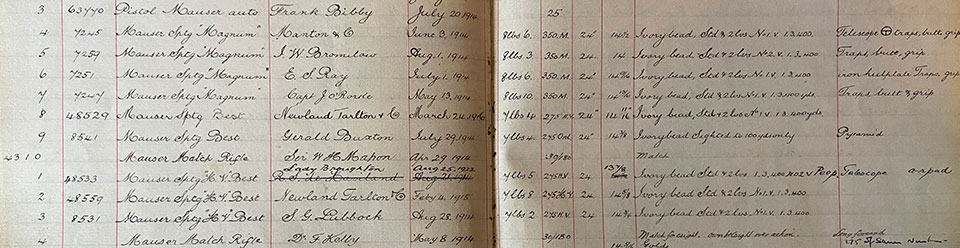 3 63770 Pistol Mauser auto Frank Bibby July 20 1914 25
4 7245 Mauser Sptg "Magnum" Manton & C June 3, 1914 8lbs 6. 350.M. 24" 14½ Ivory bead, Std & 2 lvs No1.V. 1.3.400 Telescope traps, butt, grip
5 7259 Mauser Sptg "Magnum" J. W. Bromilow Aug. 1. 1914 8lbs 3. 350.M 24 14 Ivory bead, Std & 2 lvs No2.V. 1.3.400 Traps butt, grip
6 7251 Mauser Sptg "Magnum" E. S. Ray July 1. 1914 8lbs 6. 350.M. 24 Ivory bead, Std & 2 lvs No1.V. 1.3.400 iron heelplate Traps, grip
7 7247 Mauser Sptg "Magnum" Capt J. O'Rorke May 13, 1914 8lbs 10. 350.M. 24 Ivory bead, Std & 2 lvs No1.V. 1.3.400 yds Traps butt & grip
8 48529 Mauser Sptg Best Newland Tarlton & C March 24, 1916 7lbs 4 275 24" Ivory bead, Std & 2 lvs No1.V. 1.3.400 yds
9 8541 Mauser Sptg Best Gerald Buxton July 29, 1914 7lbs 4. 275 24 Ivory bead Sighted to 100 yds only Pyramid
4310 Mauser Match Rifle Ser W. H. Mahon Apr 29. 1914 Match
Lady Broughton Aug 25. 1922 13⅞
1 48533 Mauser Sptg "H.V." Best Aug 21. 1914 7lbs 5 275 H.V 24 Ivory bead Std & 2 lvs 1.3.400 No2 V Peep. Telescope
2 48559 Mauser Sptg "H.V." Best Newland Tarlton & C Feb 4. 1915 7lbs 8 275 H.V. 24 14⅝ Ivory bead Std & 2 lvs No1.V. 1.3.400
3 8531 Mauser Sptg "H.V." Best S. G. Lubbock Aug 28. 1914 7lbs 2 275 H.V. 24 14¾ Ivory bead Std & 2 lvs No1.V. 1.3.400.
4 Mauser Match Rifle Dr. F. Kelly May 8 1914 Match foresight. own action Long foresend